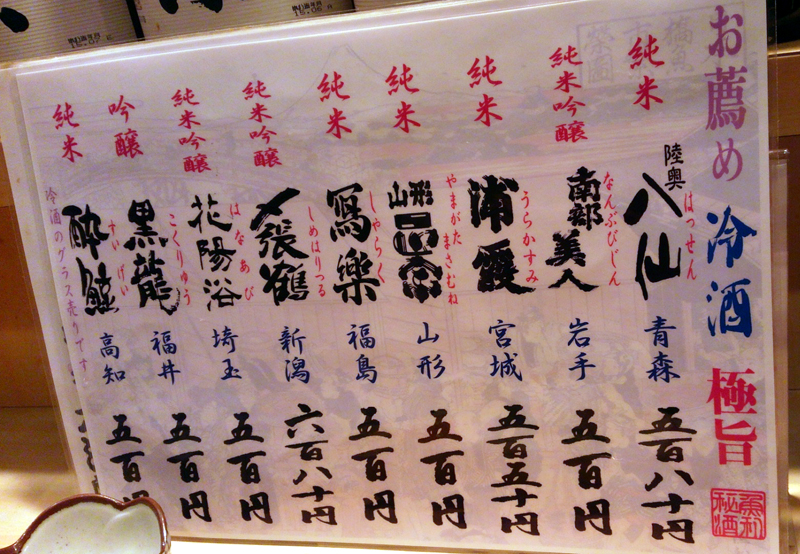 お薦め 冷酒 極旨
純米
陸奥
八仙
はっせん
青森
五百八十円
純米吟醸
南部美人
なんぶびじん
岩手
五百円
純米
浦霞
うらかすみ
宮城
五百五十円
純米
山形正宗
やまがた まさむね
山形
五百円
純米
寫樂
しゃらく
福島
五百円
純米吟醸
〆張鶴
しめはりつる
新潟
六百八十円
純米吟醸
花陽浴
はなあび
埼玉
五百円
吟醸
黒龍
こくりゅう
福井
五百円
純米
酔鯨
すいげい
高知
五百円
冷酒のグラス売りです